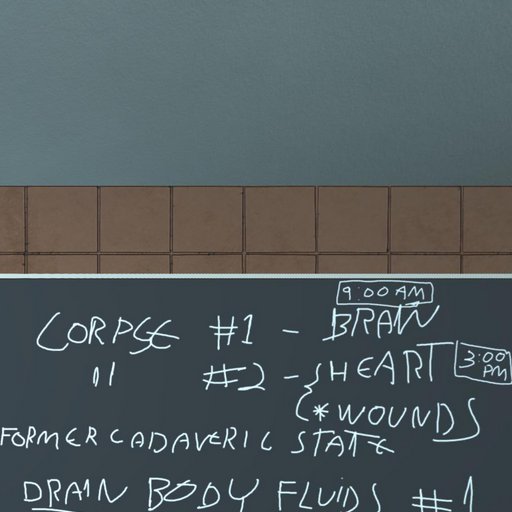 9:00 AM
CORPSE #1 - BRAIN
" #2 - { HEART 3:00 PM
* WOUNDS
FORMER CADAVERIC STATE
DRAIN BODY FLUIDS #1